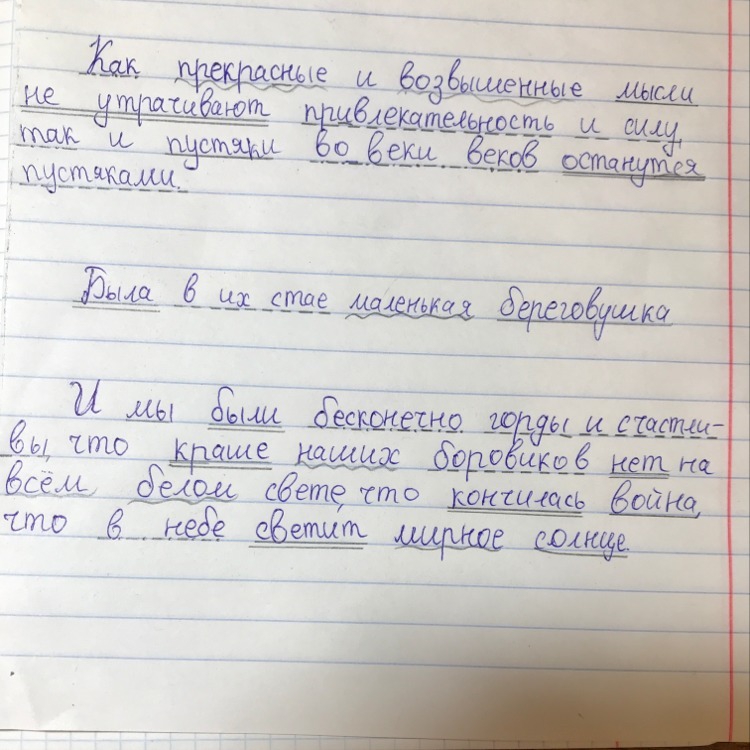 Как прекрасные и возвышенные мысли
не утрачивают привлекательность и силу,
так и пустяки во веки веков останутся
пустяками.
Была в их стае маленькая береговушка
И мы были бесконечно горды и счастли-
вы, что краше наших боровиков нет на
всём белом свете, что кончилась война,
что в небе светит мирное солнце.